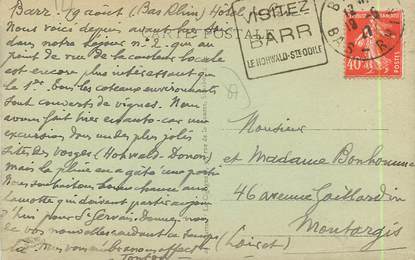 Barr. 19 août (Bas Rhin) Hôtel
Nous voici depuis avant hier soir
dans notre logeur n° 2. qui au
point de vue de la couleur locale
est encore plus intéressant que
le 1er. Tous les coteaux environnants
sont couverts de vignes. Nous
avons fait hier en auto-car une
excursion dans un des plus jolis
sites des Vosges (Hohwald-Donon)
mais la pluie en a gâté une partie
Nous souhaitons bonne chance aux
qui doivent partir aujour
d'hui pour St Gervais. Donnez nous
de vos nouvelles
Nous vous embrassons affect
Tonton
CARTE POSTALE
VISITEZ
BARR
LE HOHWALD-STE ODILE
BARR
BAS-RHIN
POSTES
40
Monsieur
et Madame Bonhomme
46 avenue Gaillardin
Montargis
(Loiret)